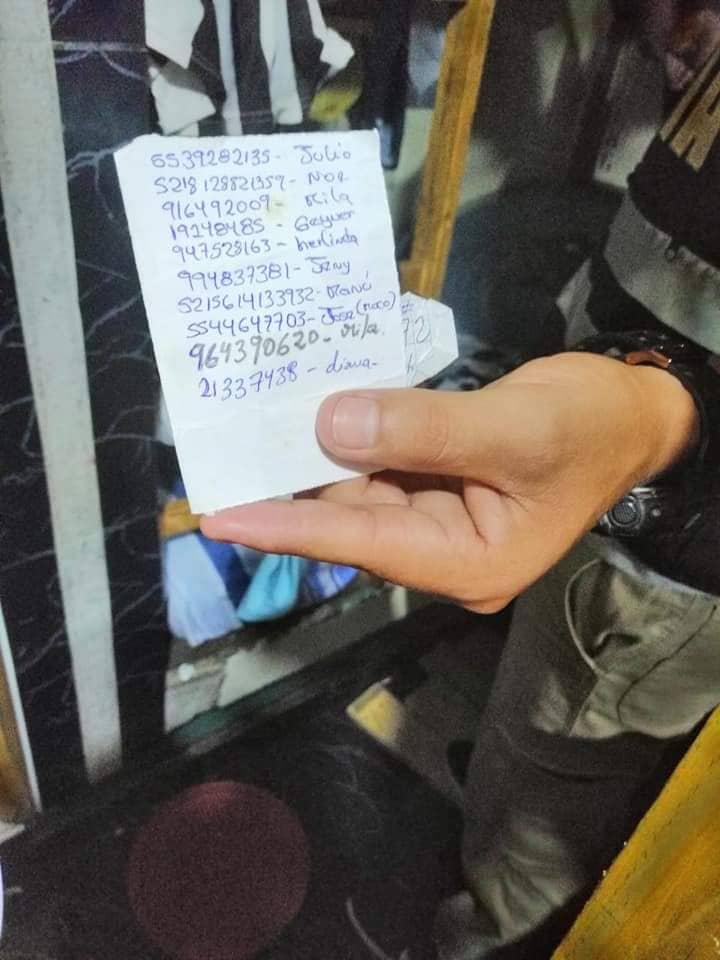 6539282135- Julio
5218128821359- Noe
916492009- Mila
19248485- Geyver
947528163- herlinda
994837381- Jeny
5215614133932-
5544647703- Jose (Meco)
964390620- Mila
21337438- diana-